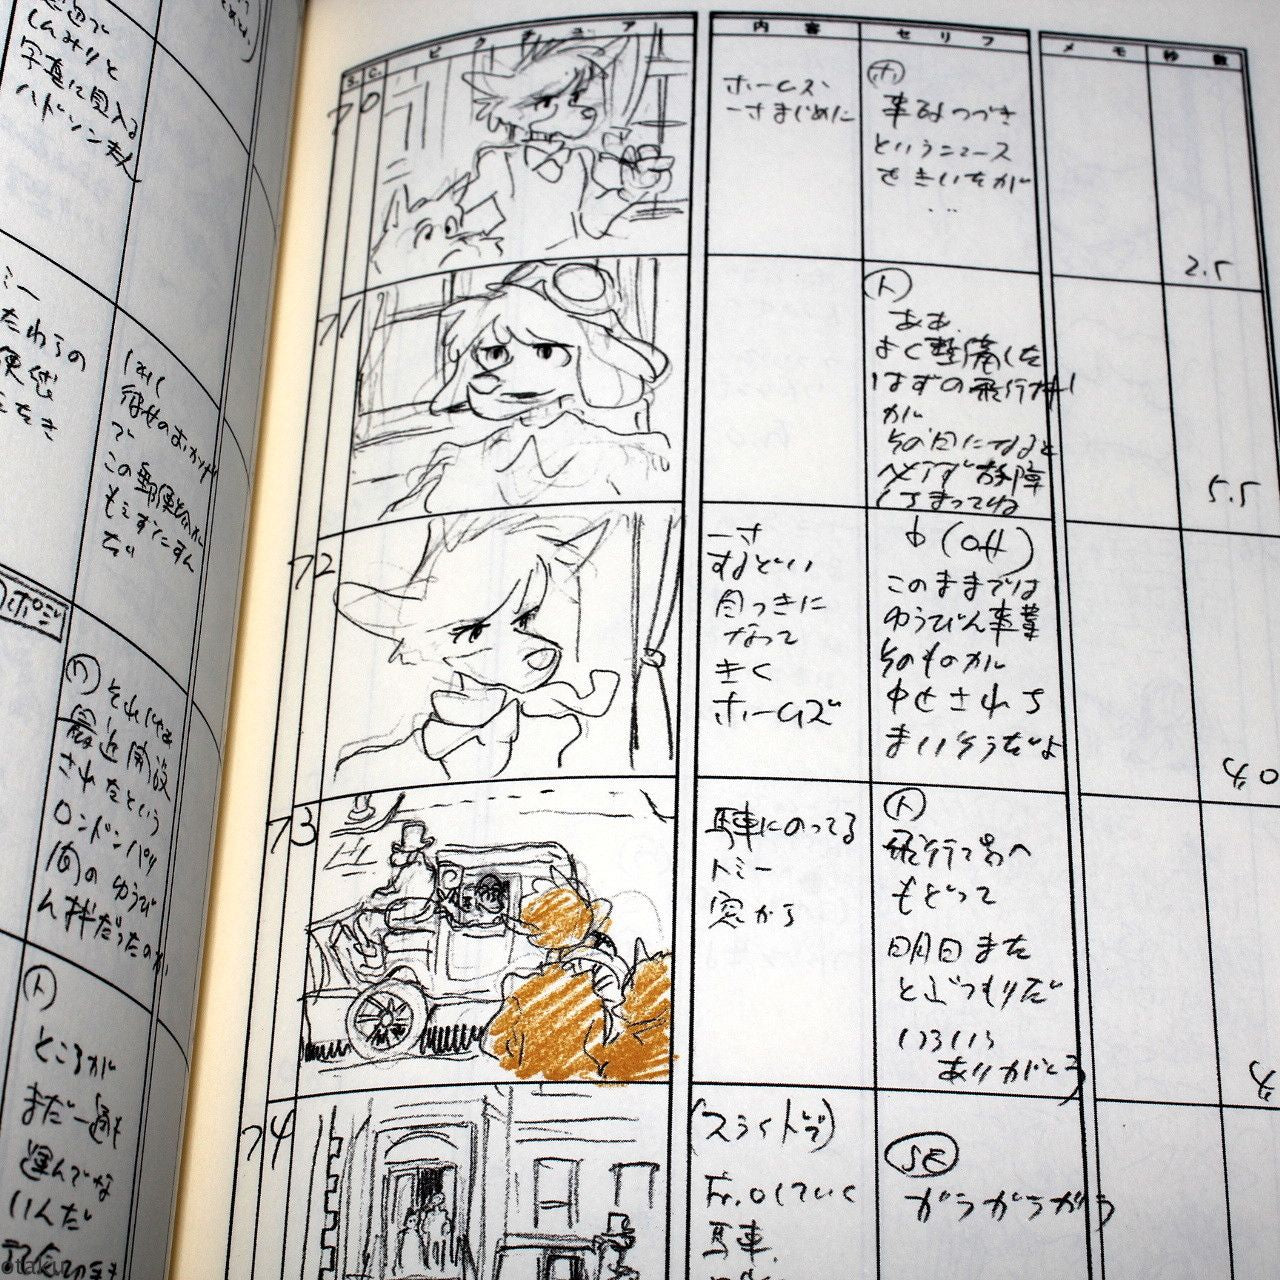 S. C. ピクチュア 内容 セリフ メモ 秒数
70
ホームズ、
一寸まじめに
ホ
事故つづき
というニュース
をきいたが
…
2.5
71
ト
ああ、
よく整備した
はずの飛行機
が
その日になると
必ず故障
しちまってね
5.5
72
一寸
するどい
目つきに
なって
きく
ホームズ
ト(Off)
このままでは
ゆうびん事業
そのものが
中せされち
まいそうだよ
73
馬車にのってる
トミー
窓から
ト
飛行場へ
もどって
明日また
とぶつもりだ
いろいろ
ありがとう
74
(スライド)
Fr.Oしていく
馬車、
SE
ガラガラガラ
しみりと
写真に見入る
ハドソン夫人
ミー
この郵便
ポジ
それじゃあ
最近開設
されたという
ロンドンパリ
間のゆうび
ん機だったのか
ト
ところが
まだ一通も
運んでな
いんだ
otaku